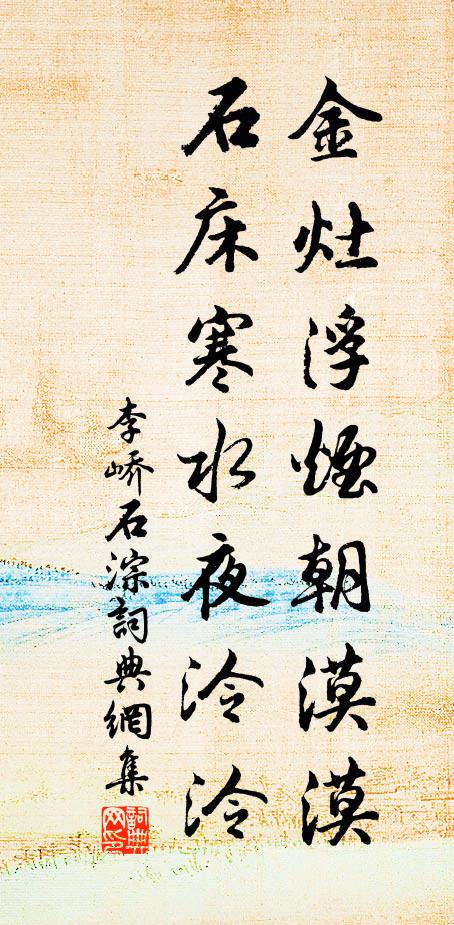 金灶浮煙朝漠漠
石床寒水夜泠泠
李嶠石淙詞典網集
詞典網印